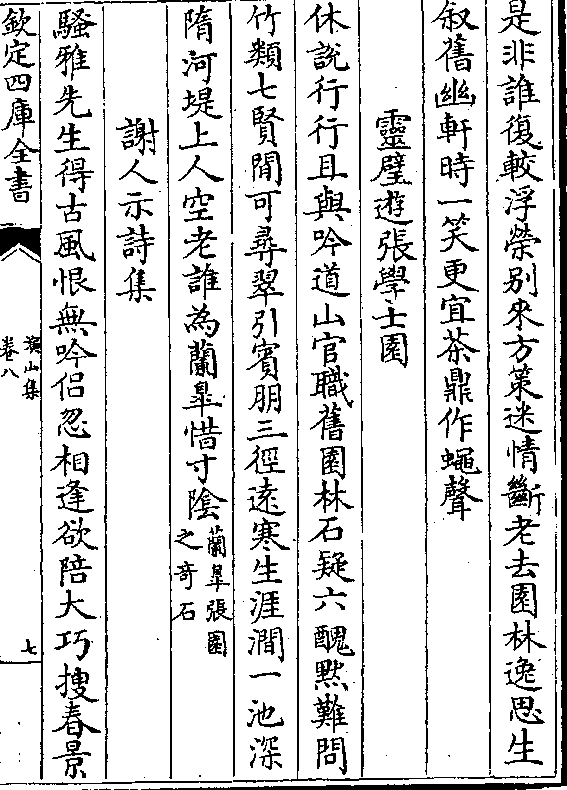 是非誰復較浮榮别來方策迷情斷老去園林逸思生
叙舊幽軒時一笑更宜茶鼎作蠅聲
靈璧遊張學士園
休説行行且與吟道山官職舊園林石疑六醜黙難問
竹類七賢閒可尋翠引賓朋三徑遠寒生涯澗一池深
隋河堤上人空老誰為蘭臯惜寸陰蘭臯張園
之奇石
謝人示詩集
騷雅先生得古風恨無吟侣忽相逢欲陪大巧搜春景
欽定四庫全書
卷八
七